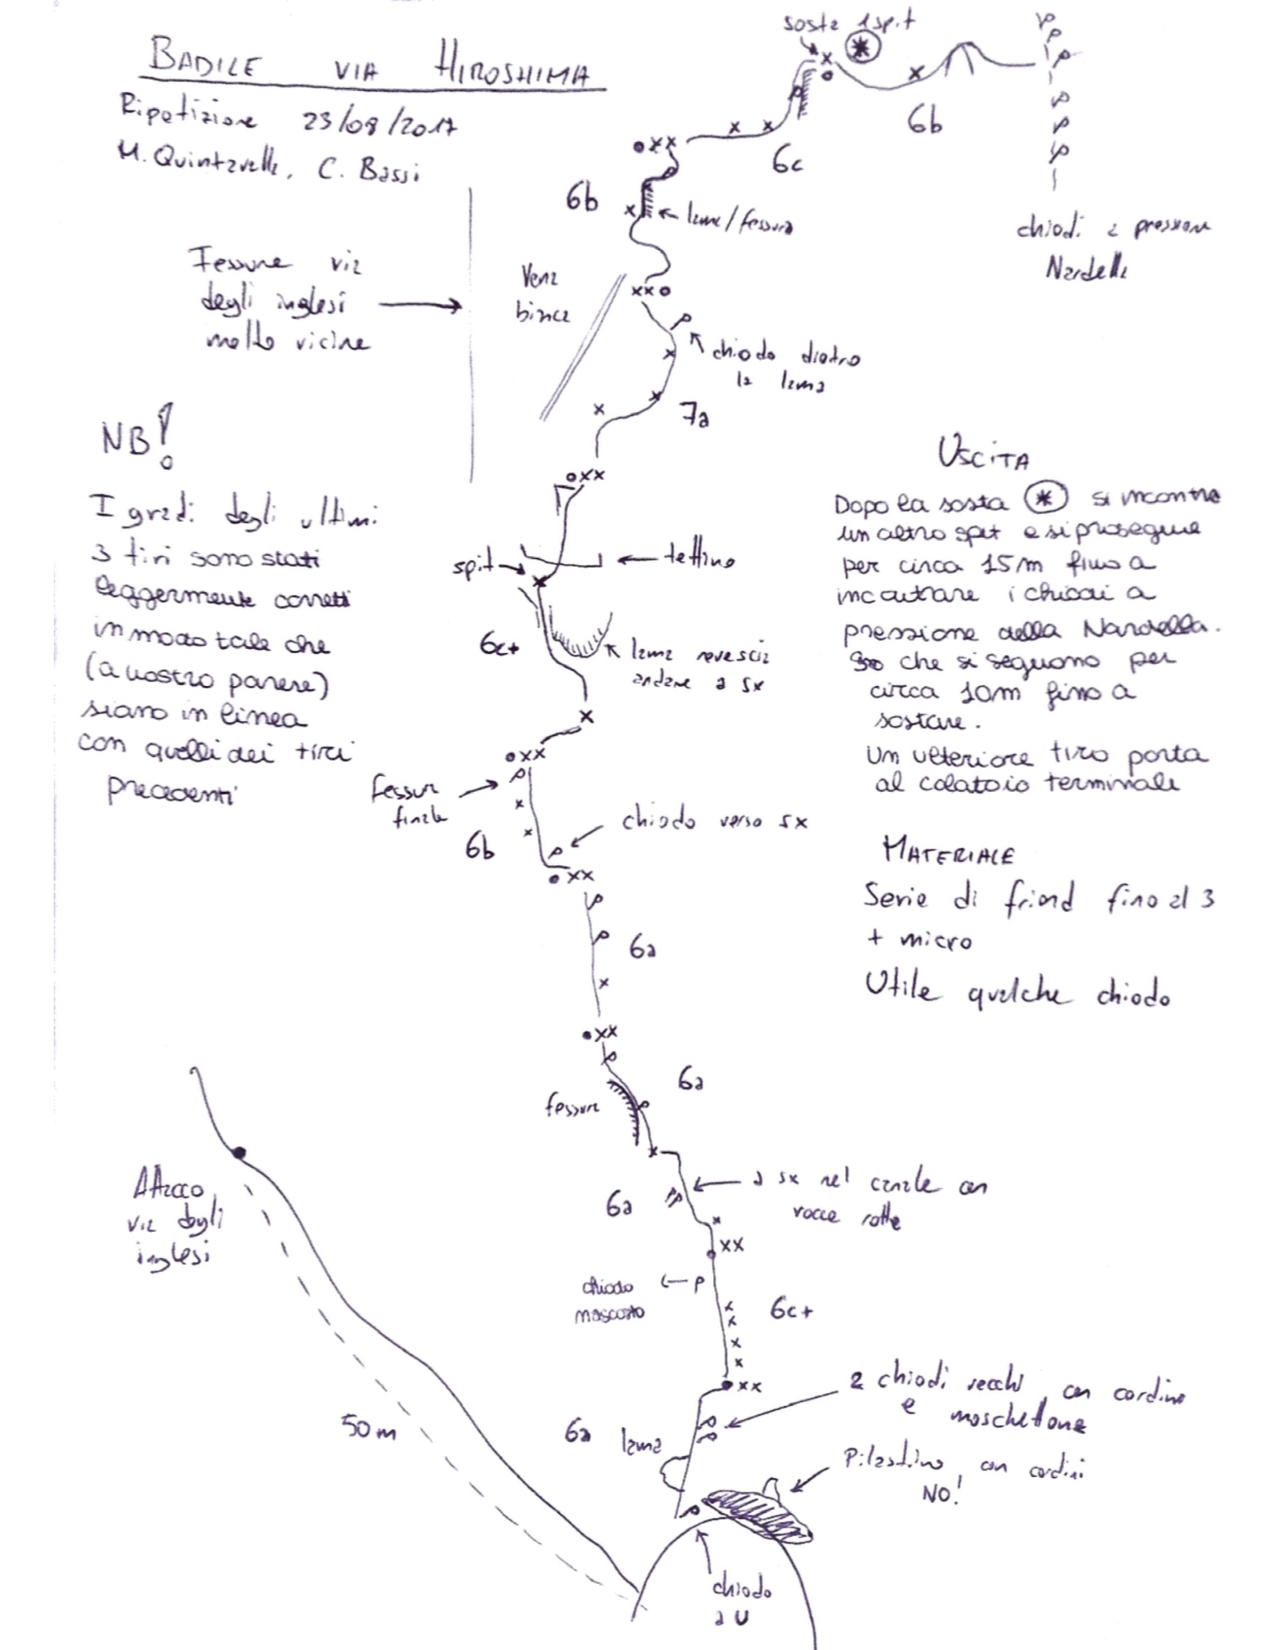 BADILE VIA HIROSHIMA
Ripetizione 23/08/2017
M. Quintavalle, C. Bassi
sosta 1 spit
*
6b
6c
6b
lama/fessura
chiodi a pressione
Nardella
Fessure via
degli inglesi
molto vicine
Vena
bianca
chiodo dietro
la lama
7a
NB!
I gradi degli ultimi
3 tiri sono stati
leggermente corretti
in modo tale che
(a nostro parere)
siano in linea
con quelli dei tiri
precedenti
USCITA
Dopo la sosta * si incontra
un altro spit e si prosegue
per circa 15m fino a
incontrare i chiodi a
pressione della Nardella.
che si seguono per
circa 10m fino a
sostare.
Un ulteriore tiro porta
al colatoio terminale
spit
tettino
6c+
lama rovescia
andare a sx
fessura
finale
6b
chiodo verso sx
MATERIALE
Serie di friend fino al 3
+ micro
Utile qualche chiodo
6a
6a
fessura
Attacco
via degli
inglesi
6a
a sx nel canale con
rocce rotte
chiodo
nascosto
6c+
2 chiodi vecchi, con cordino
e moschettone
50 m
6a
lama
Pilastrino con cordini
NO!
chiodo
a U